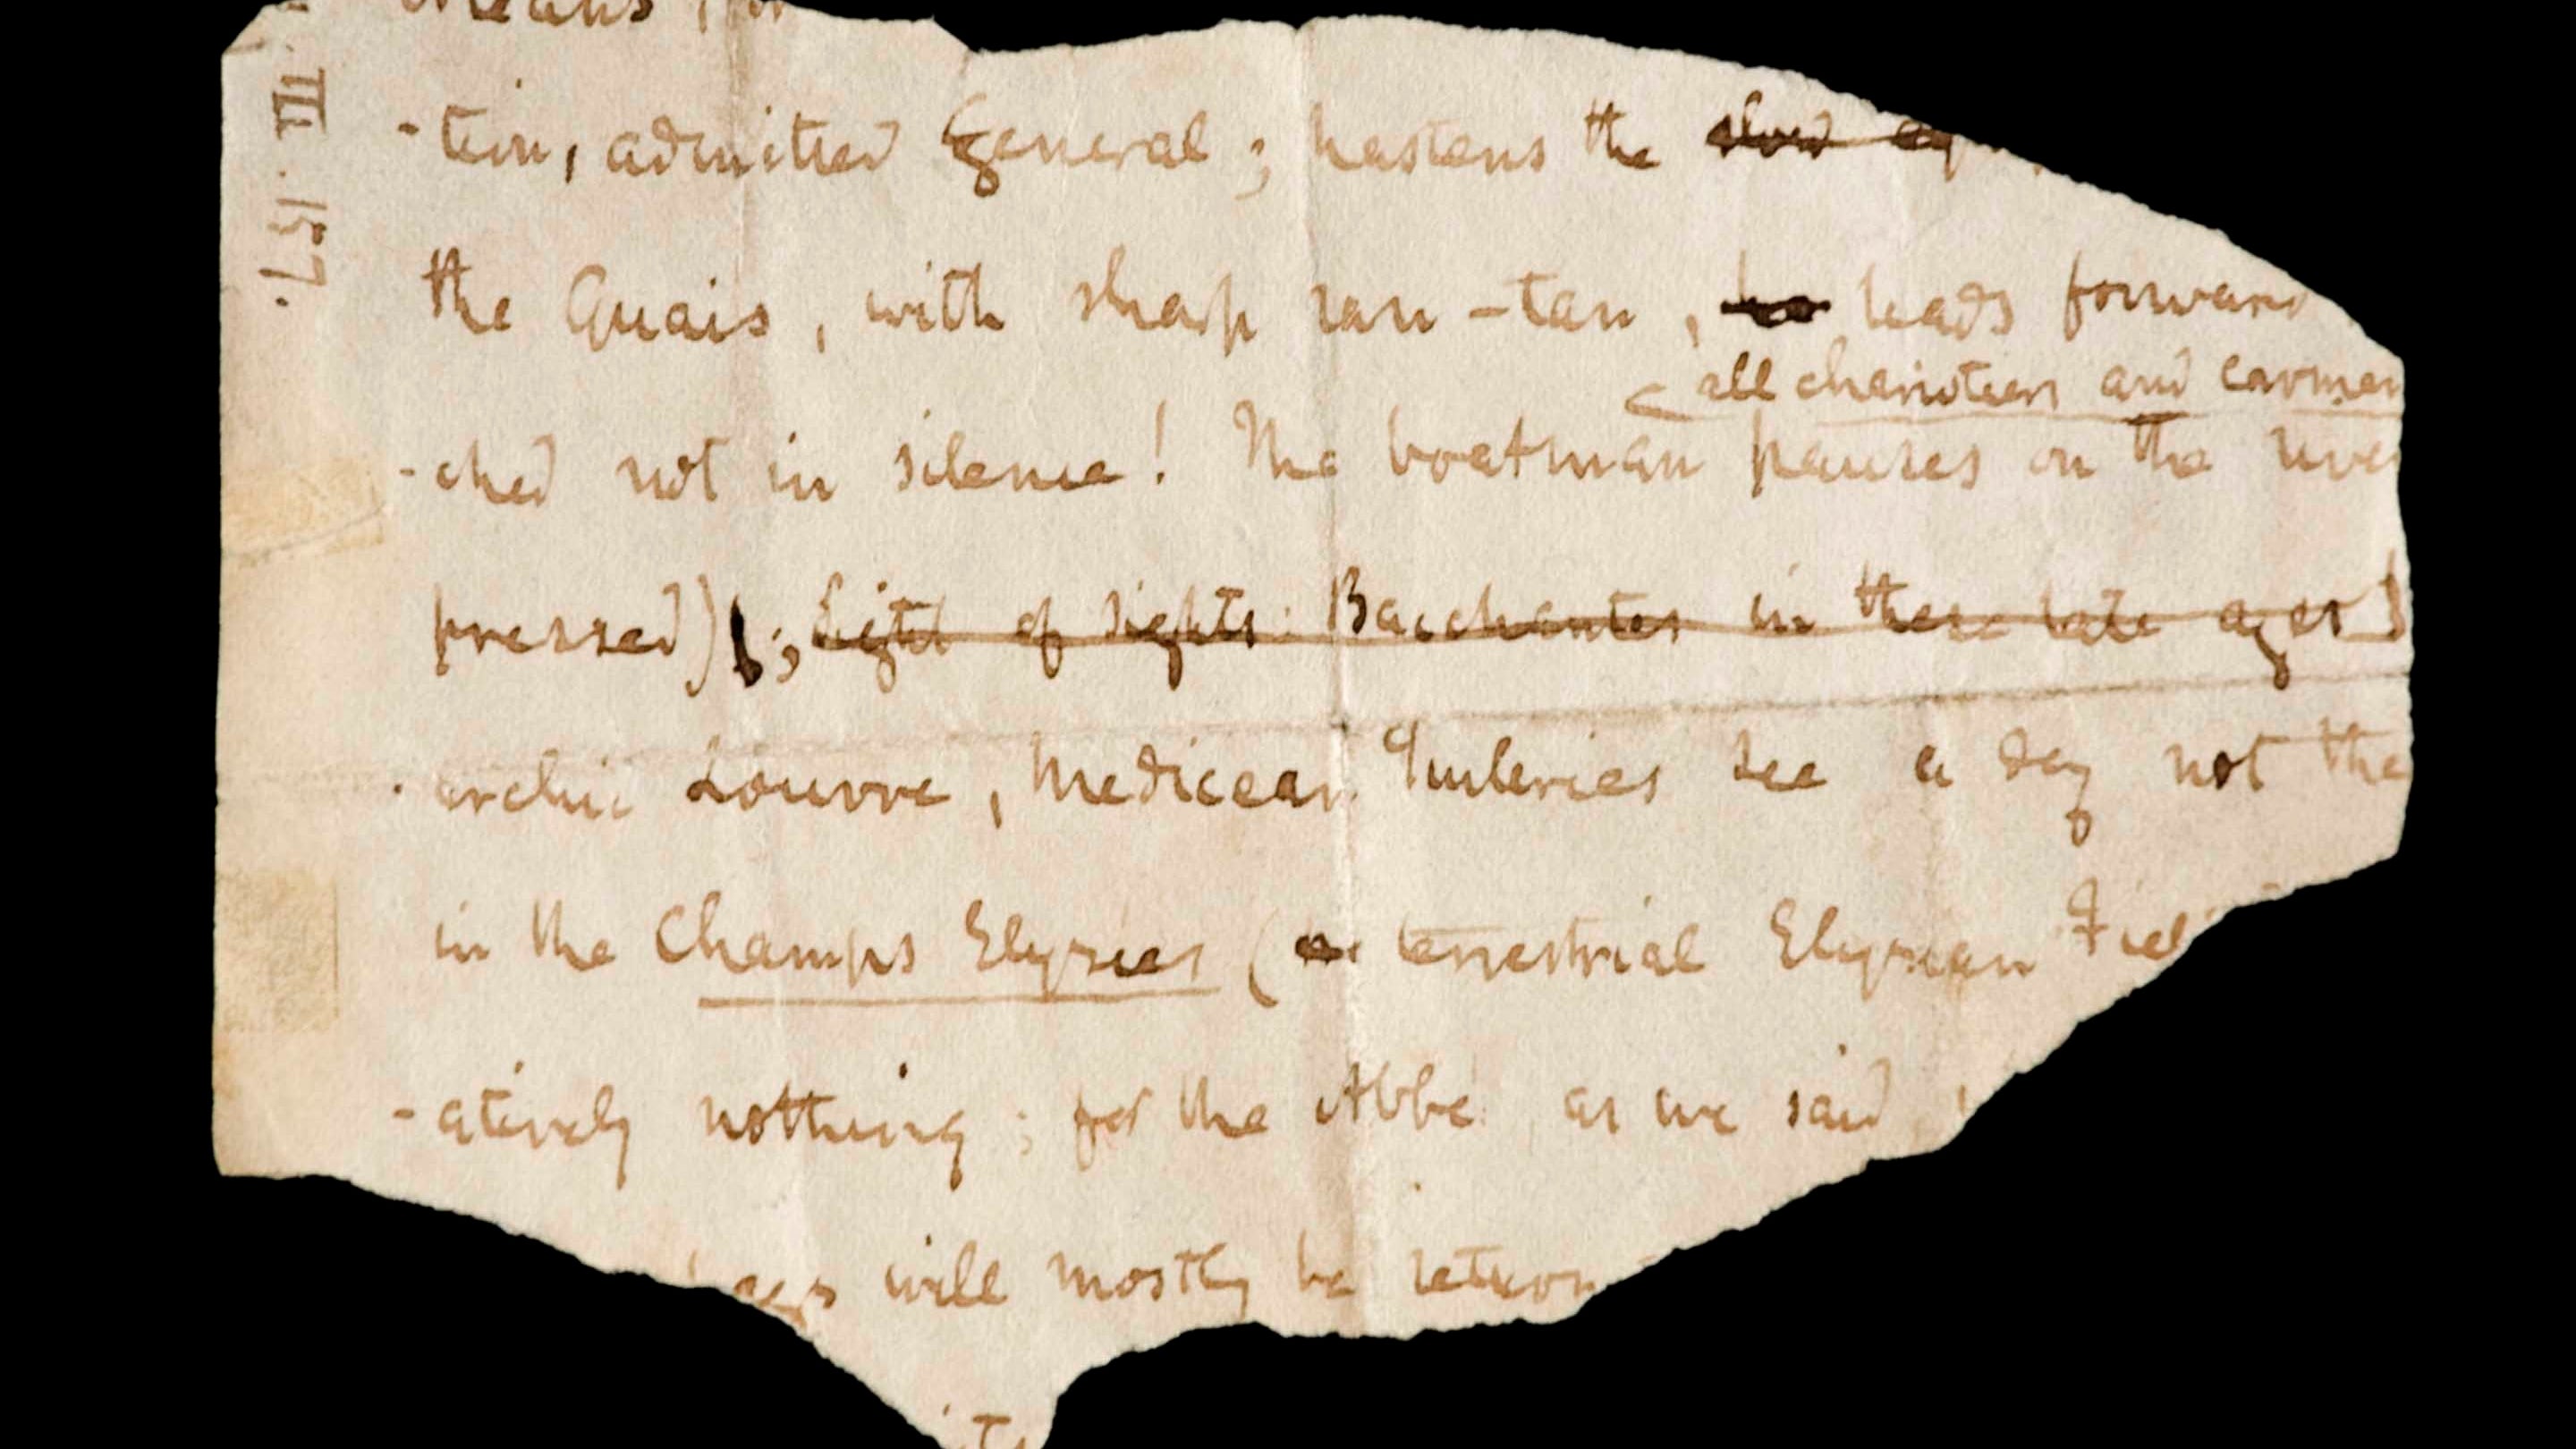 -tein, admitted General; hastens the slow
the Quais, with sharp ran-tan, he leads forward
all charioteers and carmen
-ched not in silence! The boatman pauses on the river
pressed); Sight of sights: Bacchantes in these late ages
-archic Louvre, Medicean Tuileries see a day not the
in the Champs Elysees (a terrestrial Elysian Fiel
-atively nothing; for the Abbé, as we said
will mostly be return
III. 157.